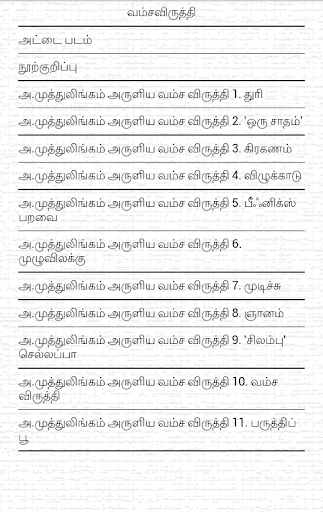 வம்சவிருத்தி
அட்டை படம்
நூற்குறிப்பு
அ.முத்துலிங்கம் அருளிய வம்ச விருத்தி 1. துரி
அ.முத்துலிங்கம் அருளிய வம்ச விருத்தி 2. 'ஒரு சாதம்'
அ.முத்துலிங்கம் அருளிய வம்ச விருத்தி 3. கிரகணம்
அ.முத்துலிங்கம் அருளிய வம்ச விருத்தி 4. விழுக்காடு
அ.முத்துலிங்கம் அருளிய வம்ச விருத்தி 5. பீஃனிக்ஸ்
பறவை
அ.முத்துலிங்கம் அருளிய வம்ச விருத்தி 6.
முழுவிலக்கு
அ.முத்துலிங்கம் அருளிய வம்ச விருத்தி 7. முடிச்சு
அ.முத்துலிங்கம் அருளிய வம்ச விருத்தி 8. ஞானம்
அ.முத்துலிங்கம் அருளிய வம்ச விருத்தி 9. 'சிலம்பு'
செல்லப்பா
அ.முத்துலிங்கம் அருளிய வம்ச விருத்தி 10. வம்ச
விருத்தி
அ.முத்துலிங்கம் அருளிய வம்ச விருத்தி 11. பருத்திப்
பூ